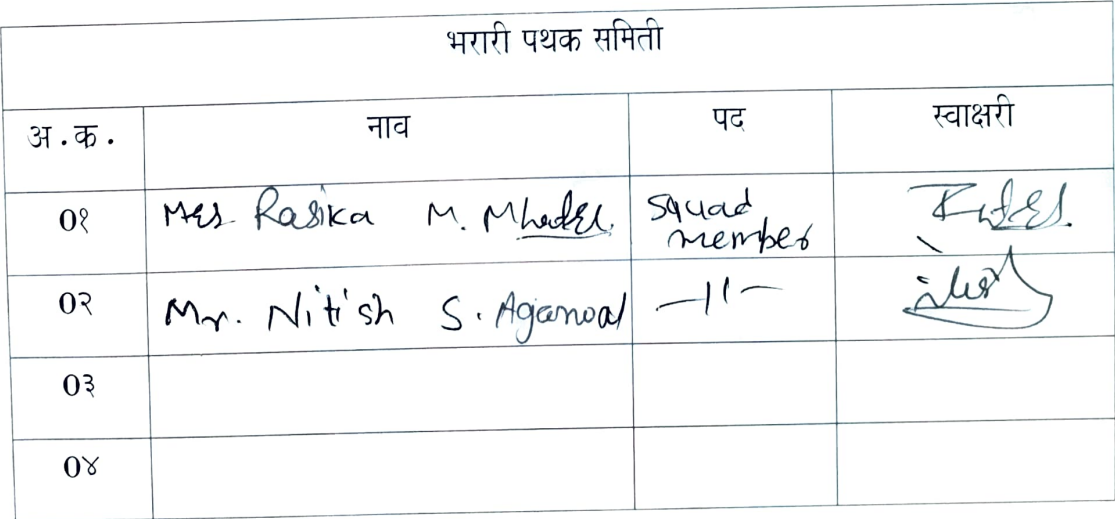 भरारी पथक समिती
अ.क. नाव पद स्वाक्षरी
०१ Mrs Rasika M. squad member
०२ Mr. Nitish S. Agarwal —11—
०३
०४